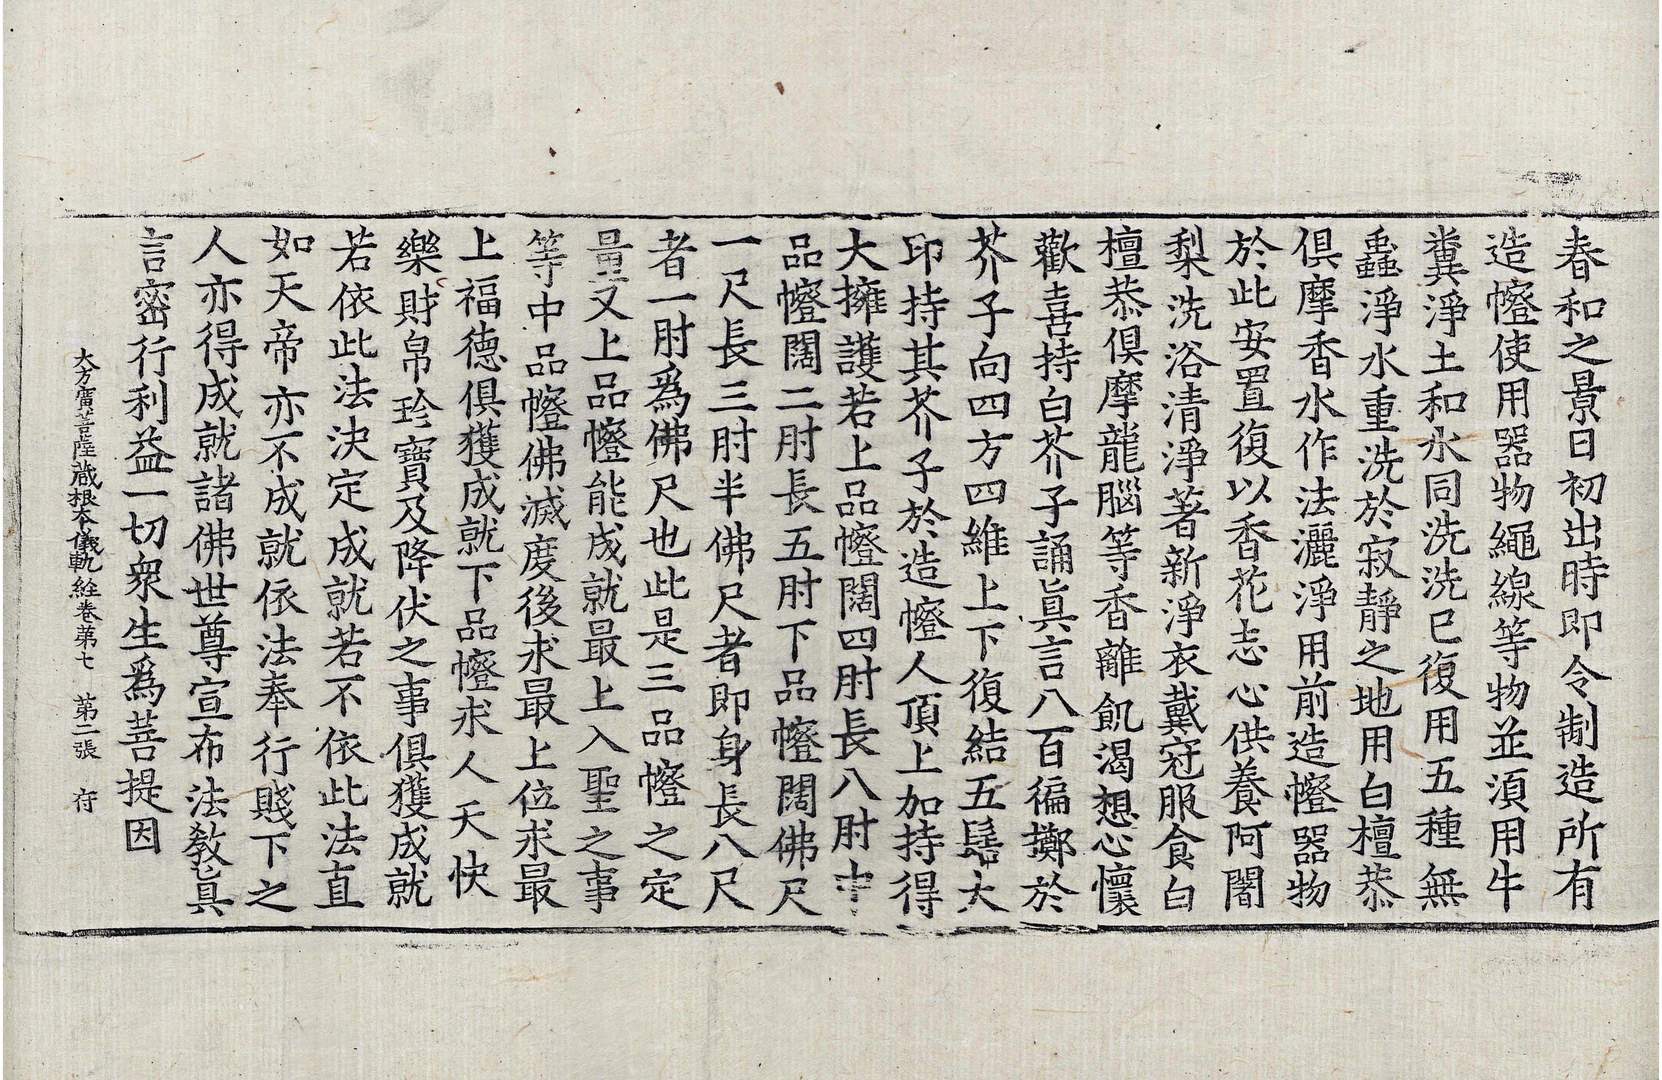 春和之景日初出時即令制造所有
造㡧使用器物繩線等物並須用牛
糞淨土和水同洗洗已復用五種無
蟲淨水重洗於寂靜之地用白檀恭
俱摩香水作法灑淨用前造㡧器物
於此安置復以香花志心供養阿闍
梨洗浴清淨著新淨衣戴冠服食白
檀恭俱摩龍腦等香離飢渴想心懷
歡喜持白芥子誦眞言八百徧擲於
芥子向四方四維上下復結五髻大
印持其芥子於造㡧人頂上加持得
大擁護若上品㡧闊四肘長八肘中
品㡧闊二肘長五肘下品㡧闊佛尺
一尺長三肘半佛尺者即身長八尺
者一肘爲佛尺也此是三品㡧之定
量又上品㡧能成就最上入聖之事
等中品㡧佛滅度後求最上位求最
上福德俱獲成就下品㡧求人天快
樂財帛珍寶及降伏之事俱獲成就
若依此法決定成就若不依此法直
如天帝亦不成就依法奉行賤下之
人亦得成就諸佛世尊宣布法教眞
言密行利益一切衆生爲菩提因
大方廣菩薩蔵根本儀軌経卷苐七 苐二張 府